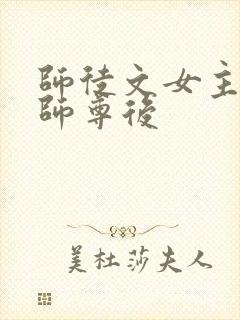 師徒文女主
師尊後
美杜莎夫人